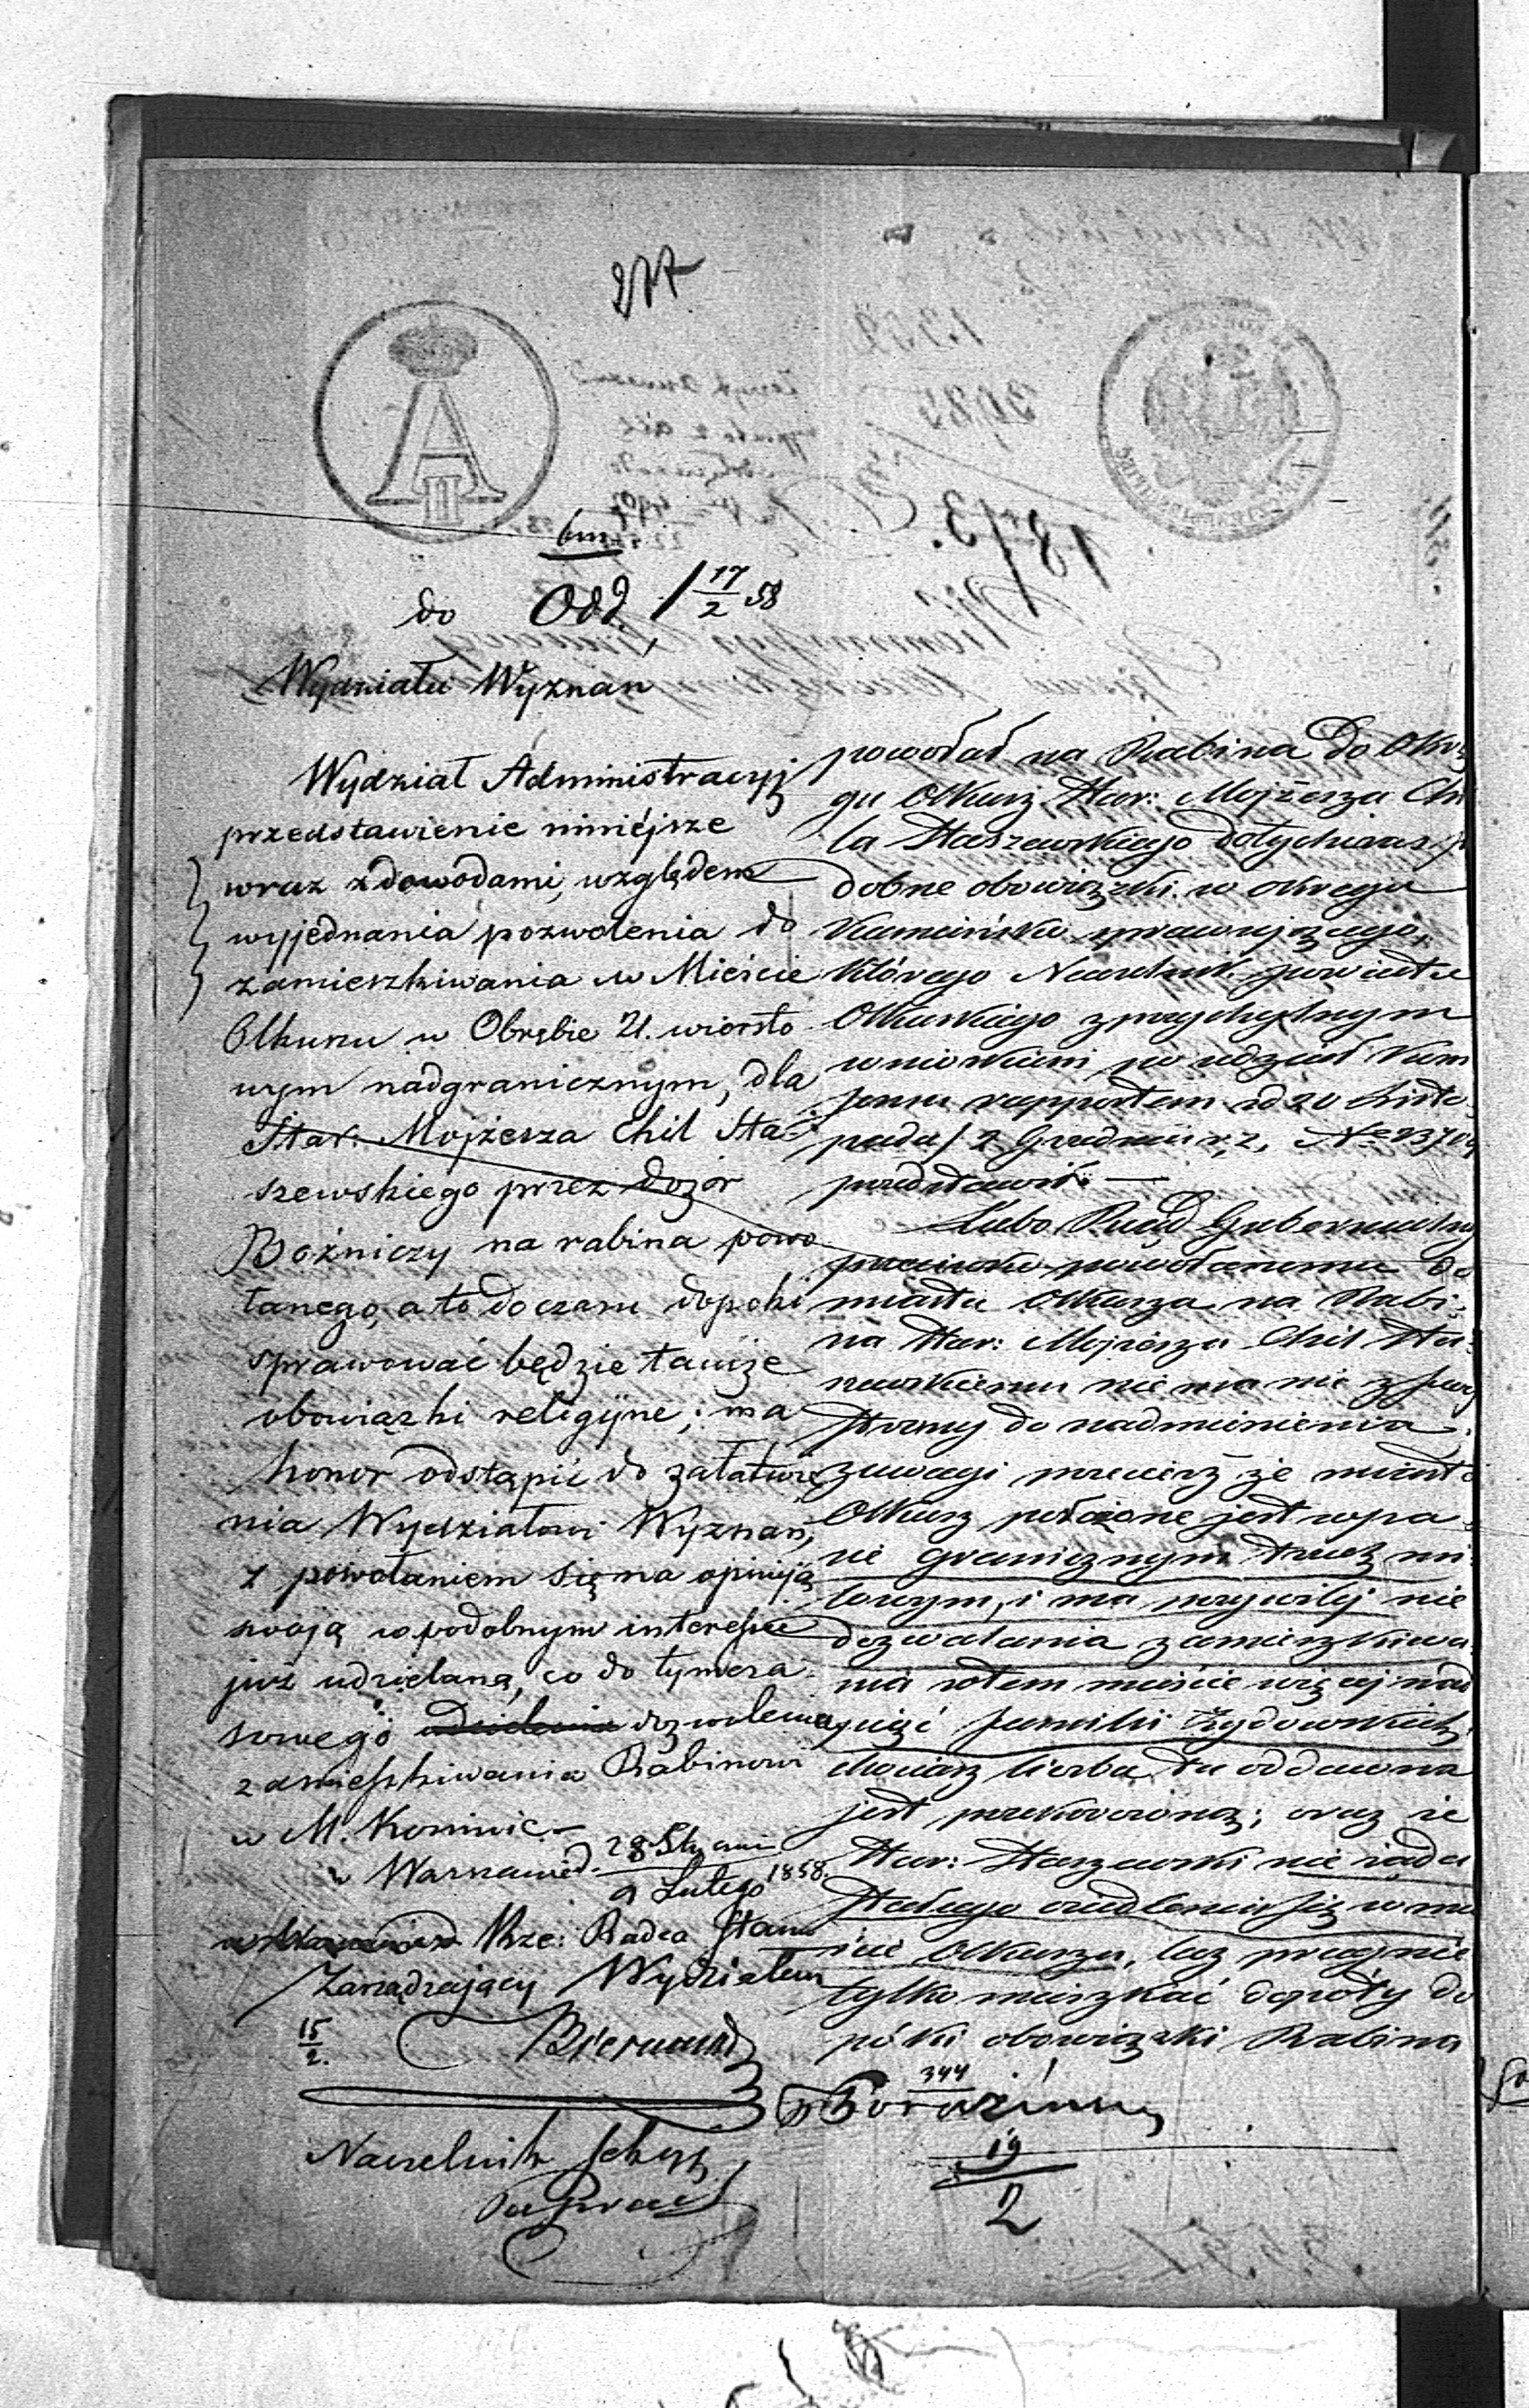 277
A II
do Odd. 1 17/2 58
Wydziału Wyznan
Wydział Administracyj
przedstawienie niniejsze
wraz z dowodami, względem
wyjednania pozwolenia do
zamieszkiwania w Mieście
Olkuszu w Obrębie 21. wiorsto
wym nadgranicznym, dla
Star: Mojżesza Chil Sta=
szewskiego przez Dozór
Bożniczy na rabina powo
łanego, a to do czasu dopoki
sprawować będzie tamże
obowiązki religijne; ma
honor odstąpić do załatwie
nia Wydziałowi Wyznań,
z powołaniem się na opinią
swoją w podobnym interesie
już udzieloną, co do tymcza
sowego dozwolenia
zamieszkiwania Rabinowi
w M.
w Warszawie d. 28 Stycznia
9 Lutego 1858.
Rze: Radca Stanu
Zarządzający Wydziałem
15/2.
Naczelnik Sekcyi
powołał na Rabina do Okrę
gu Olkusz Star: Mojżesza Chi
la Staszewskiego dotychczas po
dobne obowiązki w okręgu
Kamińsku sprawującego,
którego Naczelnik powiatu
Olkuskiego z przychylnym
wnioskiem
rapportem od 20 Listo
pada/2 Grudnia r, z, Nº 2370
przedstawił. —
Lubo Rząd Gubernialny
przeciwko powołanemu do
miasta Olkusza na Rabi
na Star: Mojżesza Chil Sta
szewskiemu nie ma nic z swej
strony do nadmienienia,
z uwagi przecież że miasto
Olkusz położone jest w pa
sie granicznym trzech mi
lowym, i ma przywilej nie
dozwalania zamieszkiwa
nia w tem mieście więcej nad
pięć familii żydowskich,
chociaż liczba ta oddawna
jest przekroczoną; oraz że
Star: Staszewski nie żąda
stałego osiedlenia się w mie
ście Olkuszu, lecz pragnie
tylko mieszkać dopóty do
póki obowiązki Rabina
344
19/2